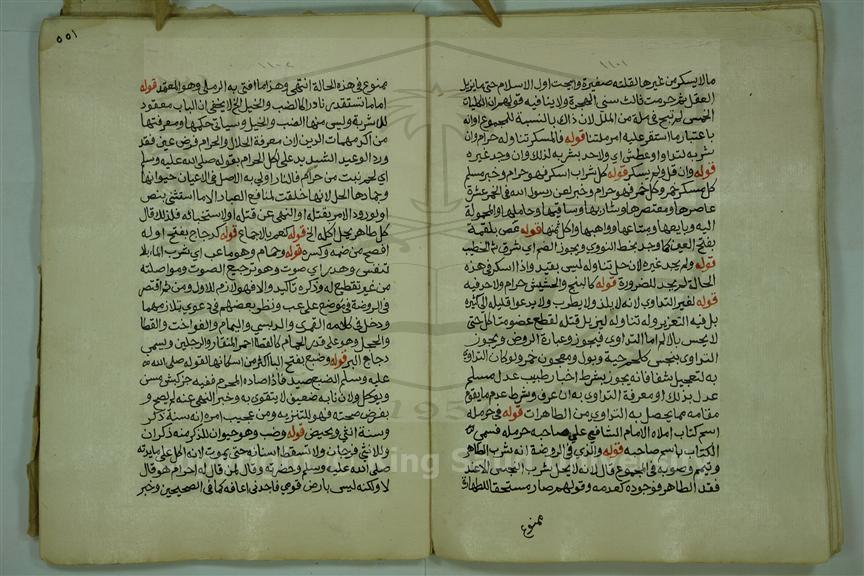 ١١٠١
ما لا يسكر من غيرها لقلته صغيرة وابيحت اول الاسلام حتى ما يزيل
العقل ثم حرمت ثالث سني الهجرة ولا ينافيه قولهم ان الكليات
الخمس لم تبح في ملة من الملل لان ذاك بالنسبة للمجموع او انه
باعتبار ما استقر عليه امر ملتنا قوله فالمسكر تناوله حرام وان
شربه لتداو او عطش اي ولا حد بشربه لذلك وان وجد غيره
قوله وان قل ولم يسكر قوله كل شراب اسكر فهو حرام وخبر مسلم
كل مسكر خمر وكل خمر فهو حرام وخبر لعن رسول الله في الخمر عشرة
عاصرها ومعتصرها وشاربها وساقيها وحاملها والمحمولة
اليه وبايعها ومبتاعها وواهبها واكل ثمنها قوله غص بلقمة
بفتح الغين كما وجد بخط النووي ويجوز الضم اي شرق خطيب
قوله ولم يجد غيره لان حل تناوله ليس بقيد واذا اسكر في هذه
الحالة لم يحد للضرورة قوله كالبنج والحشيش حرام ولا حد فيه
قوله لغير التداوي لانه لا يلذ ولا يطرب ولا يدعو قليله الى كثيره
بل فيه التعزير وله تناوله ليزيل عقله لقطع عضو متاكل حتى
لا يحس بالالم اما التداوي فيجوز وعبارة الروض ويجوز
التداوي بنجس كلحم حية وبول ومعجون خمر ولو كان التداوي
به لتعجيل شفا فانه يجوز بشرط اخبار طبيب عدل مسلم
عدل بذلك او معرفة التداوي به ان عرف وشرط عدم ما يقوم
مقامه مما يحصل به التداوي من الطاهرات قوله في حرملة
اسم كتاب املاه الامام الشافعي على صاحبه حرملة فسمي
الكتاب باسم صاحبه قوله والذي في الروضة انه يشرب الطاهر
ويتيمم وصوبه في المجموع قال لانه لا يحل شرب النجس الا عند
فقد الطاهر فوجوده كعدمه وقولهم صار مستحقا للطهارة
ممنوع
٥٥١
١١٠٢
ممنوع في هذه الحالة انتهى وهذا ما افتى به الرملي وهو المعتمد قوله
اما ما تستقذره نادرا كالضب والخيل الخ لا يخفى ان الباب معقود
للاشربة وليس منها الضب والخيل وسياتي حكمها ومعرفتها
من اكد مهمات الدين لان معرفة الحلال والحرام فرض عين فقد
ورد الوعيد الشديد على اكل الحرام بقوله صلى الله عليه وسلم
اي لحم نبت من حرام فالنار اولى به الاصل في الاعيان حيوانها
وجمادها الحل لانها خلقت لمنافع العباد الا ما استثني بنص
او لورود الامر بقتله او النهي عن قتله او لاستخباثه فلذلك قال
كل طاهر يحل اكله الخ قوله كنعم بالاجماع قوله كدجاج بفتح اوله
افصح من ضمه وكسره قوله وحمام وهو ما عب اي شرب الماء بلا
تنفس وهدر اي صوت وهو ترجيع الصوت ومواصلته
من غير تقطيع له وذكره تاكيد والا فهو لازم للاول ومن ثم اقتصر
في الروضة في موضع على عب ونظر بعضهم في دعوى تلازمهما
ودخل في كلامه القمري والدبسي واليمام والفواخت والقطا
والحجل وهو على قدر الحمام كالقطا احمر المنقار والرجلين ويسمى
دجاج البر قوله وضبع بفتح الباء اكثر من اسكانها لقوله صلى الله
عليه وسلم الضبع صيد فاذا صاده المحرم ففيه جزا كبش مسن
ويوكل ولان نابه ضعيف لا يتقوى به وخبر النهي عنه لم يصح و
بفرض صحته فهو للتنزيه ومن عجيب امره انه سنة ذكر
وسنة انثى ويحيض قوله وضب وهو حيوان للذكر منه ذكران
وللانثى فرجان ولا تسقط اسنانه حتى يموت لان اكل على مايدته
صلى الله عليه وسلم وبحضرته وقال لمن قال له احرام هو قال
لا ولكنه ليس بارض قومي فاجدني اعافه كما في الصحيحين وخبر